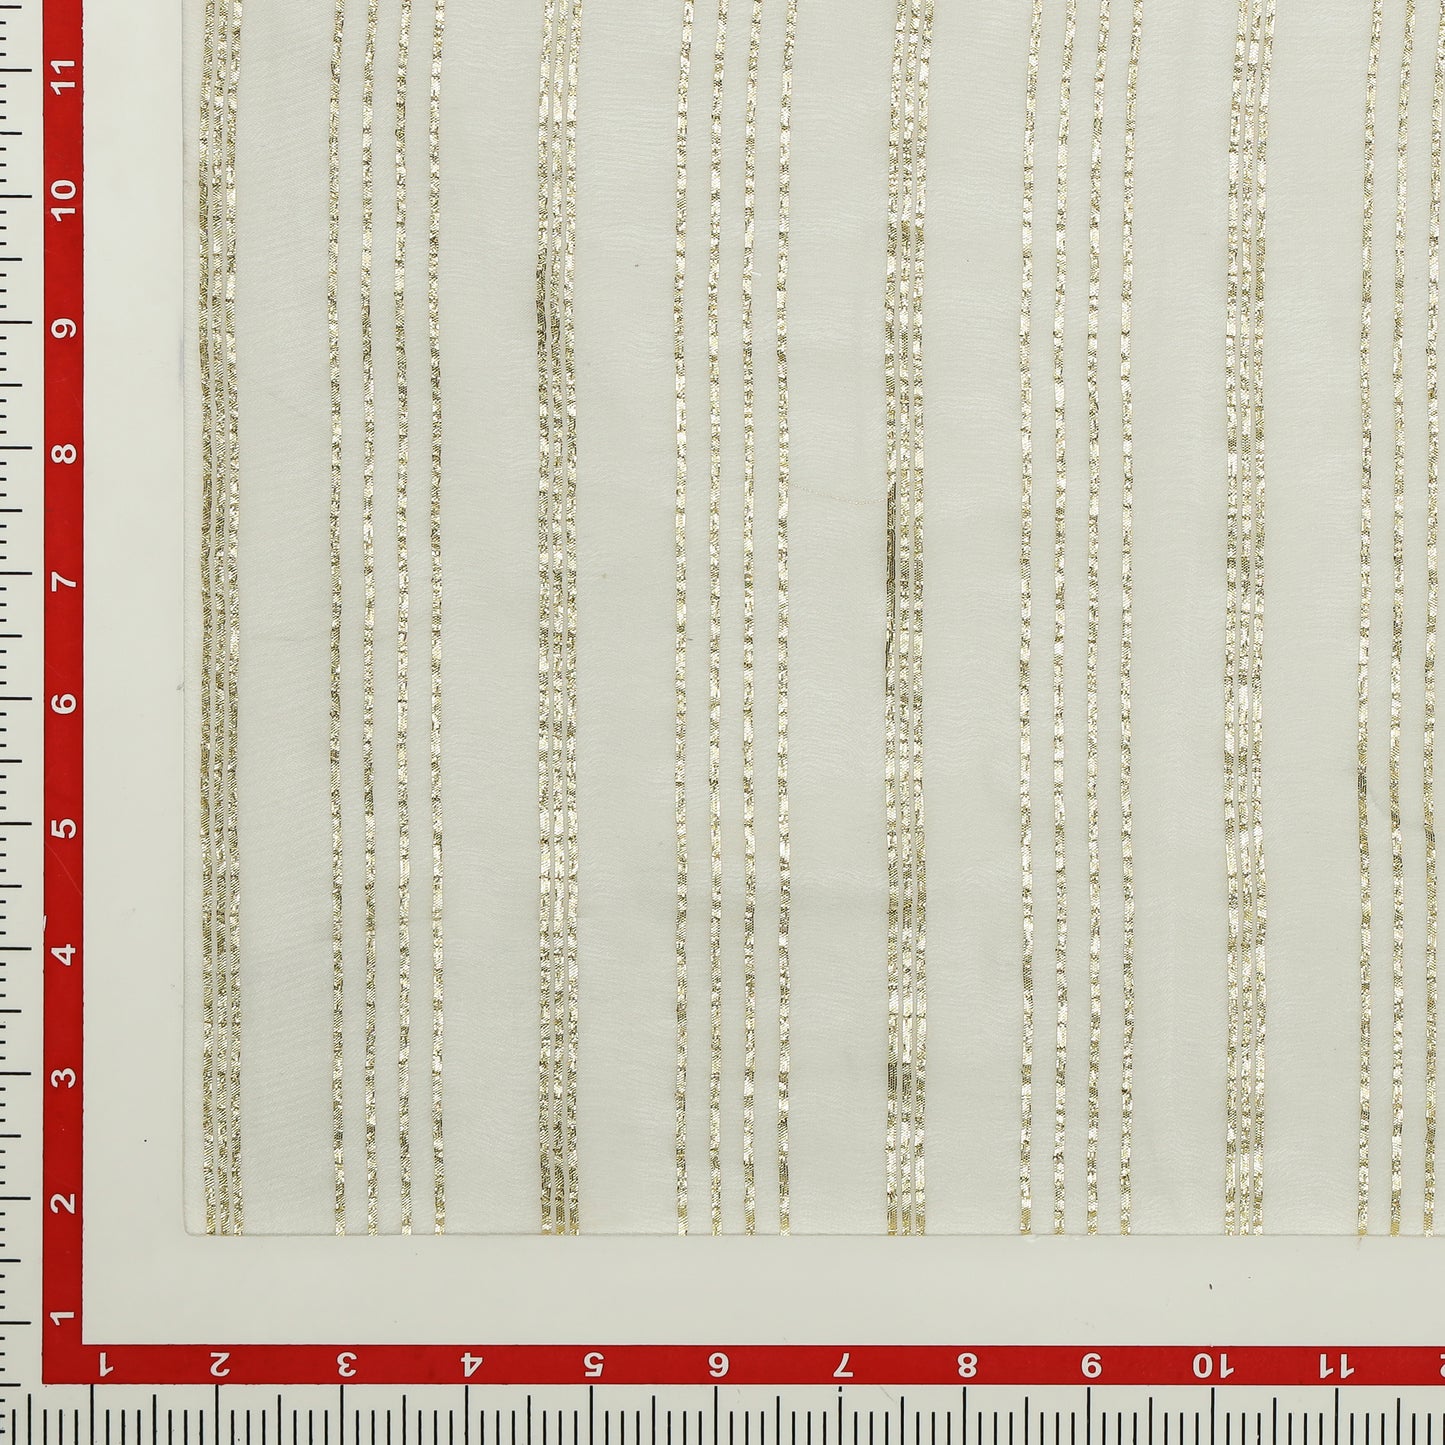 11
10
9
8
7
6
5
4
3
2
1
1 2 3 4 5 6 7 8 9 10 11 2